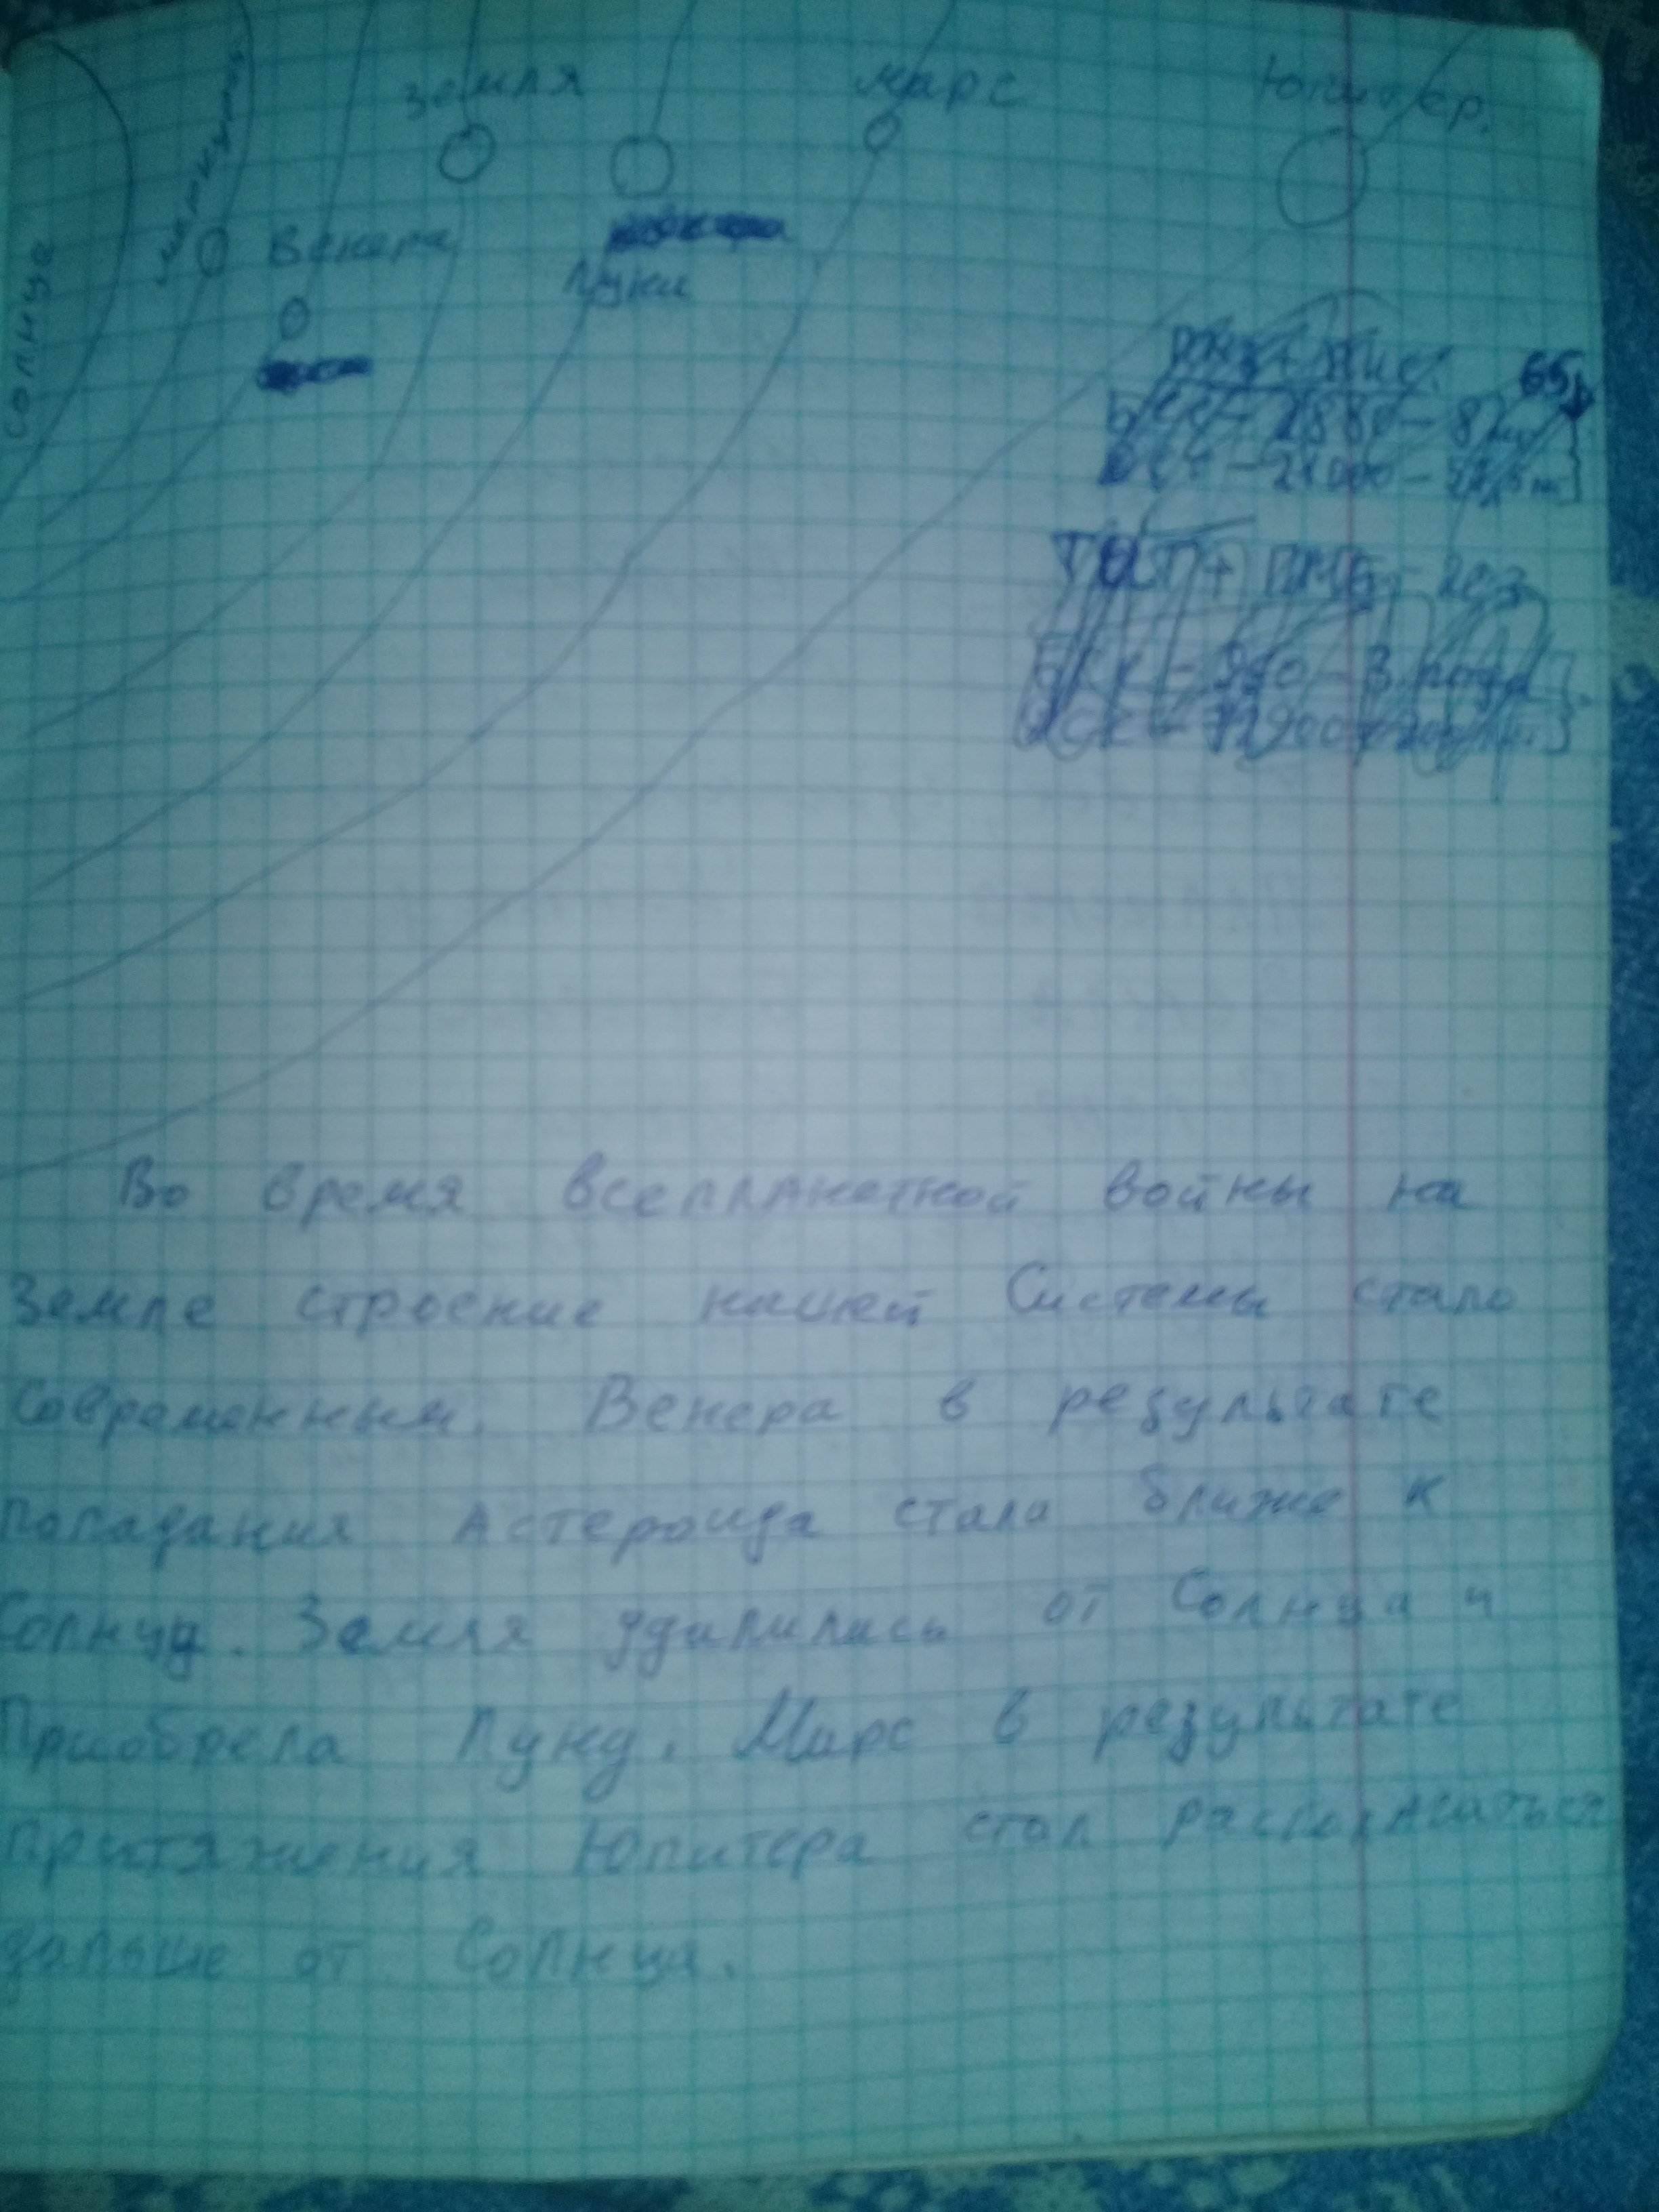 Земля
Марс
Юпитер.
Меркурий
Солнце
Венера
Луна
65
Во время всепланетной войны на
Земле строение нашей Системы стало
современным. Венера в результате
попадания Астероида стала ближе к
Солнцу. Земля удалилась от Солнца и
Приобрела Луну. Марс в результате
Притяжения Юпитера стал распологаться
дальше от Солнца.